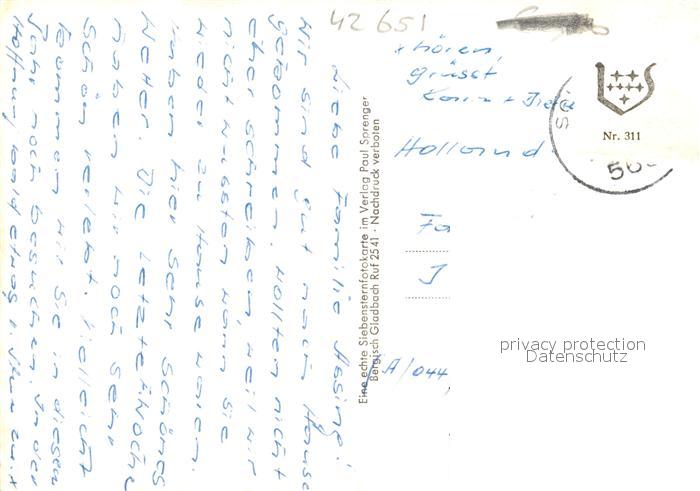 42651
Liebe Familie Assing!
Wir sind gut nach Hause
gekommen, wollten nicht
eher schreiben, weil wir
nicht wussten wann Sie
wieder zu Hause waren.
Haben hier sehr schönes
Wetter. Die letzte Woche
haben wir noch sehr
schön verlebt. Vielleicht
kommen wir Sie in diesem
Jahr noch besuchen. In der
Hoffnung bald etwas v. Ihnen zu
x hören,
grüsst
Karin +
Holland
Fa
J
A/044,
Eine echte Siebensternfotokarte im Verlag Paul Sprenger
Bergisch Gladbach Ruf 2541 · Nachdruck verboten
LS
Nr. 311
50
privacy protection
Datenschutz